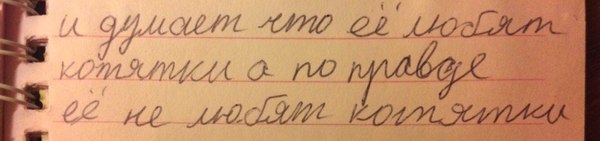 и думает что её любят
котятки а по правде
её не любят котятки